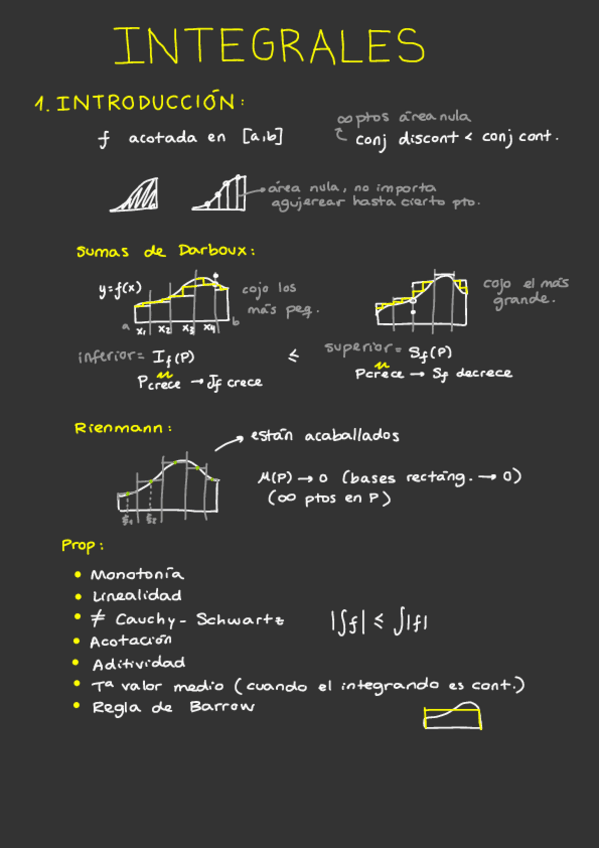 INTEGRALES
1. INTRODUCCIÓN:
∞ ptos área nula
f acotada en [a,b]
conj discont < conj cont.
área nula, no importa
agujerear hasta cierto pto.
Sumas de Darboux:
y=f(x)
cojo los
más peq.
cojo el más
grande.
a x₁ x₂ x₃ x₄ b
inferior = I_f(P) ≤ superior = S_f(P)
P crece → I_f crece
P crece → S_f decrece
Rienmann:
están acaballados
μ(P) → 0 (bases rectáng. → 0)
(∞ ptos en P)
ξ₁ ξ₂
Prop:
• Monotonía
• Linealidad
• ≠ Cauchy - Schwartz |∫f| ≤ ∫|f|
• Acotación
• Aditividad
• Tª valor medio (cuando el integrando es cont.)
• Regla de Barrow